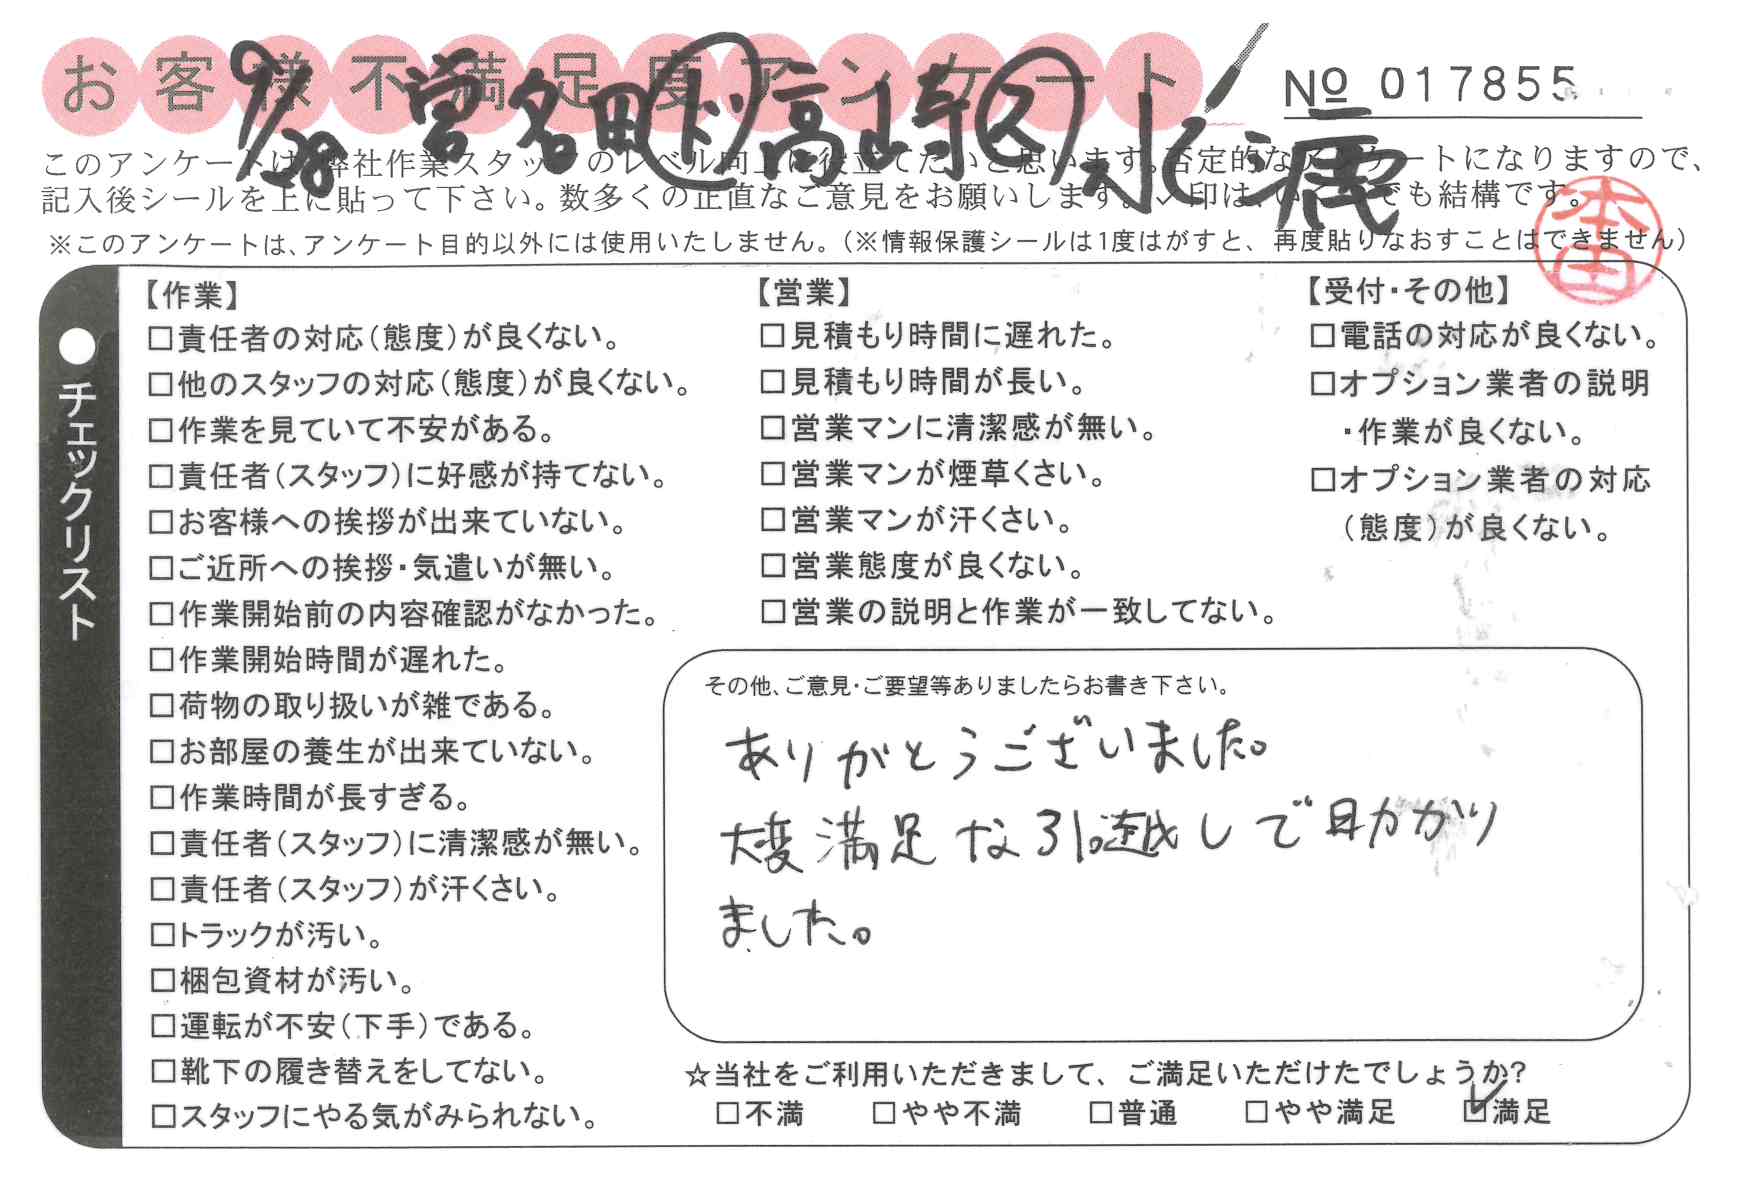 お客様不満足度アンケート
№ 017855
9/28 営 名田 ド 高崎 ス 水
このアンケートは、弊社作業スタッフのレベル向上に役立てたいと思います。否定的なアンケートになりますので、
記入後シールを上に貼って下さい。数多くの正直なご意見をお願いします。✓印は、いくつでも結構です。
※このアンケートは、アンケート目的以外には使用いたしません。（※情報保護シールは1度はがすと、再度貼りなおすことはできません）
本田
●チェックリスト
【作業】
□責任者の対応（態度）が良くない。
□他のスタッフの対応（態度）が良くない。
□作業を見ていて不安がある。
□責任者（スタッフ）に好感が持てない。
□お客様への挨拶が出来ていない。
□ご近所への挨拶・気遣いが無い。
□作業開始前の内容確認がなかった。
□作業開始時間が遅れた。
□荷物の取り扱いが雑である。
□お部屋の養生が出来ていない。
□作業時間が長すぎる。
□責任者（スタッフ）に清潔感が無い。
□責任者（スタッフ）が汗くさい。
□トラックが汚い。
□梱包資材が汚い。
□運転が不安（下手）である。
□靴下の履き替えをしてない。
□スタッフにやる気がみられない。
【営業】
□見積もり時間に遅れた。
□見積もり時間が長い。
□営業マンに清潔感が無い。
□営業マンが煙草くさい。
□営業マンが汗くさい。
□営業態度が良くない。
□営業の説明と作業が一致してない。
【受付・その他】
□電話の対応が良くない。
□オプション業者の説明
・作業が良くない。
□オプション業者の対応
（態度）が良くない。
その他、ご意見・ご要望等ありましたらお書き下さい。
ありがとうございました。
大変満足な引越しで助かり
ました。
☆当社をご利用いただきまして、ご満足いただけたでしょうか?
□不満 □やや不満 □普通 □やや満足 ☑満足